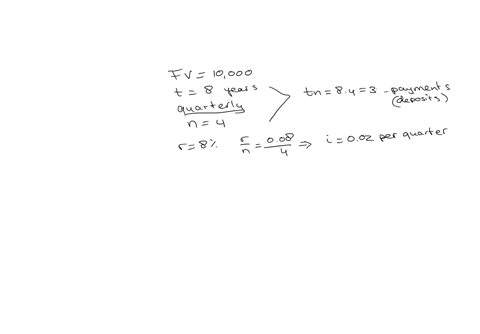 FV = 10,000
t = 8 years
quarterly
n = 4
tn = 8.4 = 3 - payments
(deposits)
r = 8% r/n = 0.08/4 ⇒ i = 0.02 per quarter